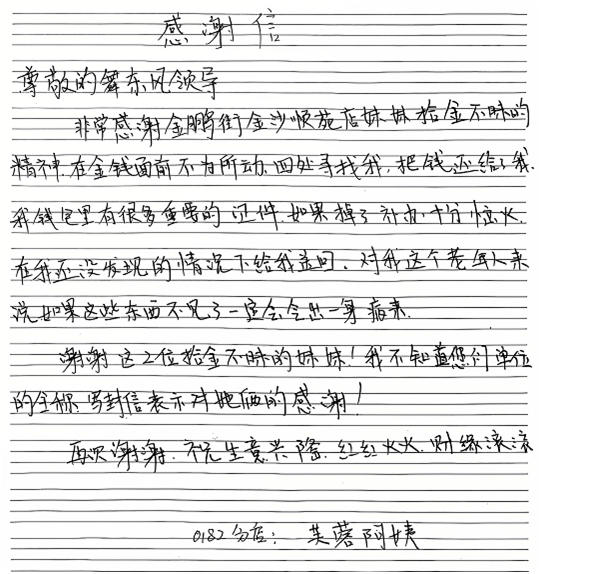 感谢信
尊敬的舞东风领导
非常感谢金鹏街金沙顺苑店妹妹拾金不昧的
精神.在金钱面前不为所动.四处寻找我,把钱还给了我.
我钱包里有很多重要的证件.如果掉了补办十分恼火.
在我还没发现的情况下给我送回.对我这个老年人来
说如果这些东西不见了一定会急出一身病来.
谢谢这2位拾金不昧的妹妹!我不知道您们单位
的全称.写封信表示对她俩的感谢!
再次谢谢.祝生意兴隆.红红火火.财源滚滚
0182分店:芙蓉阿姨